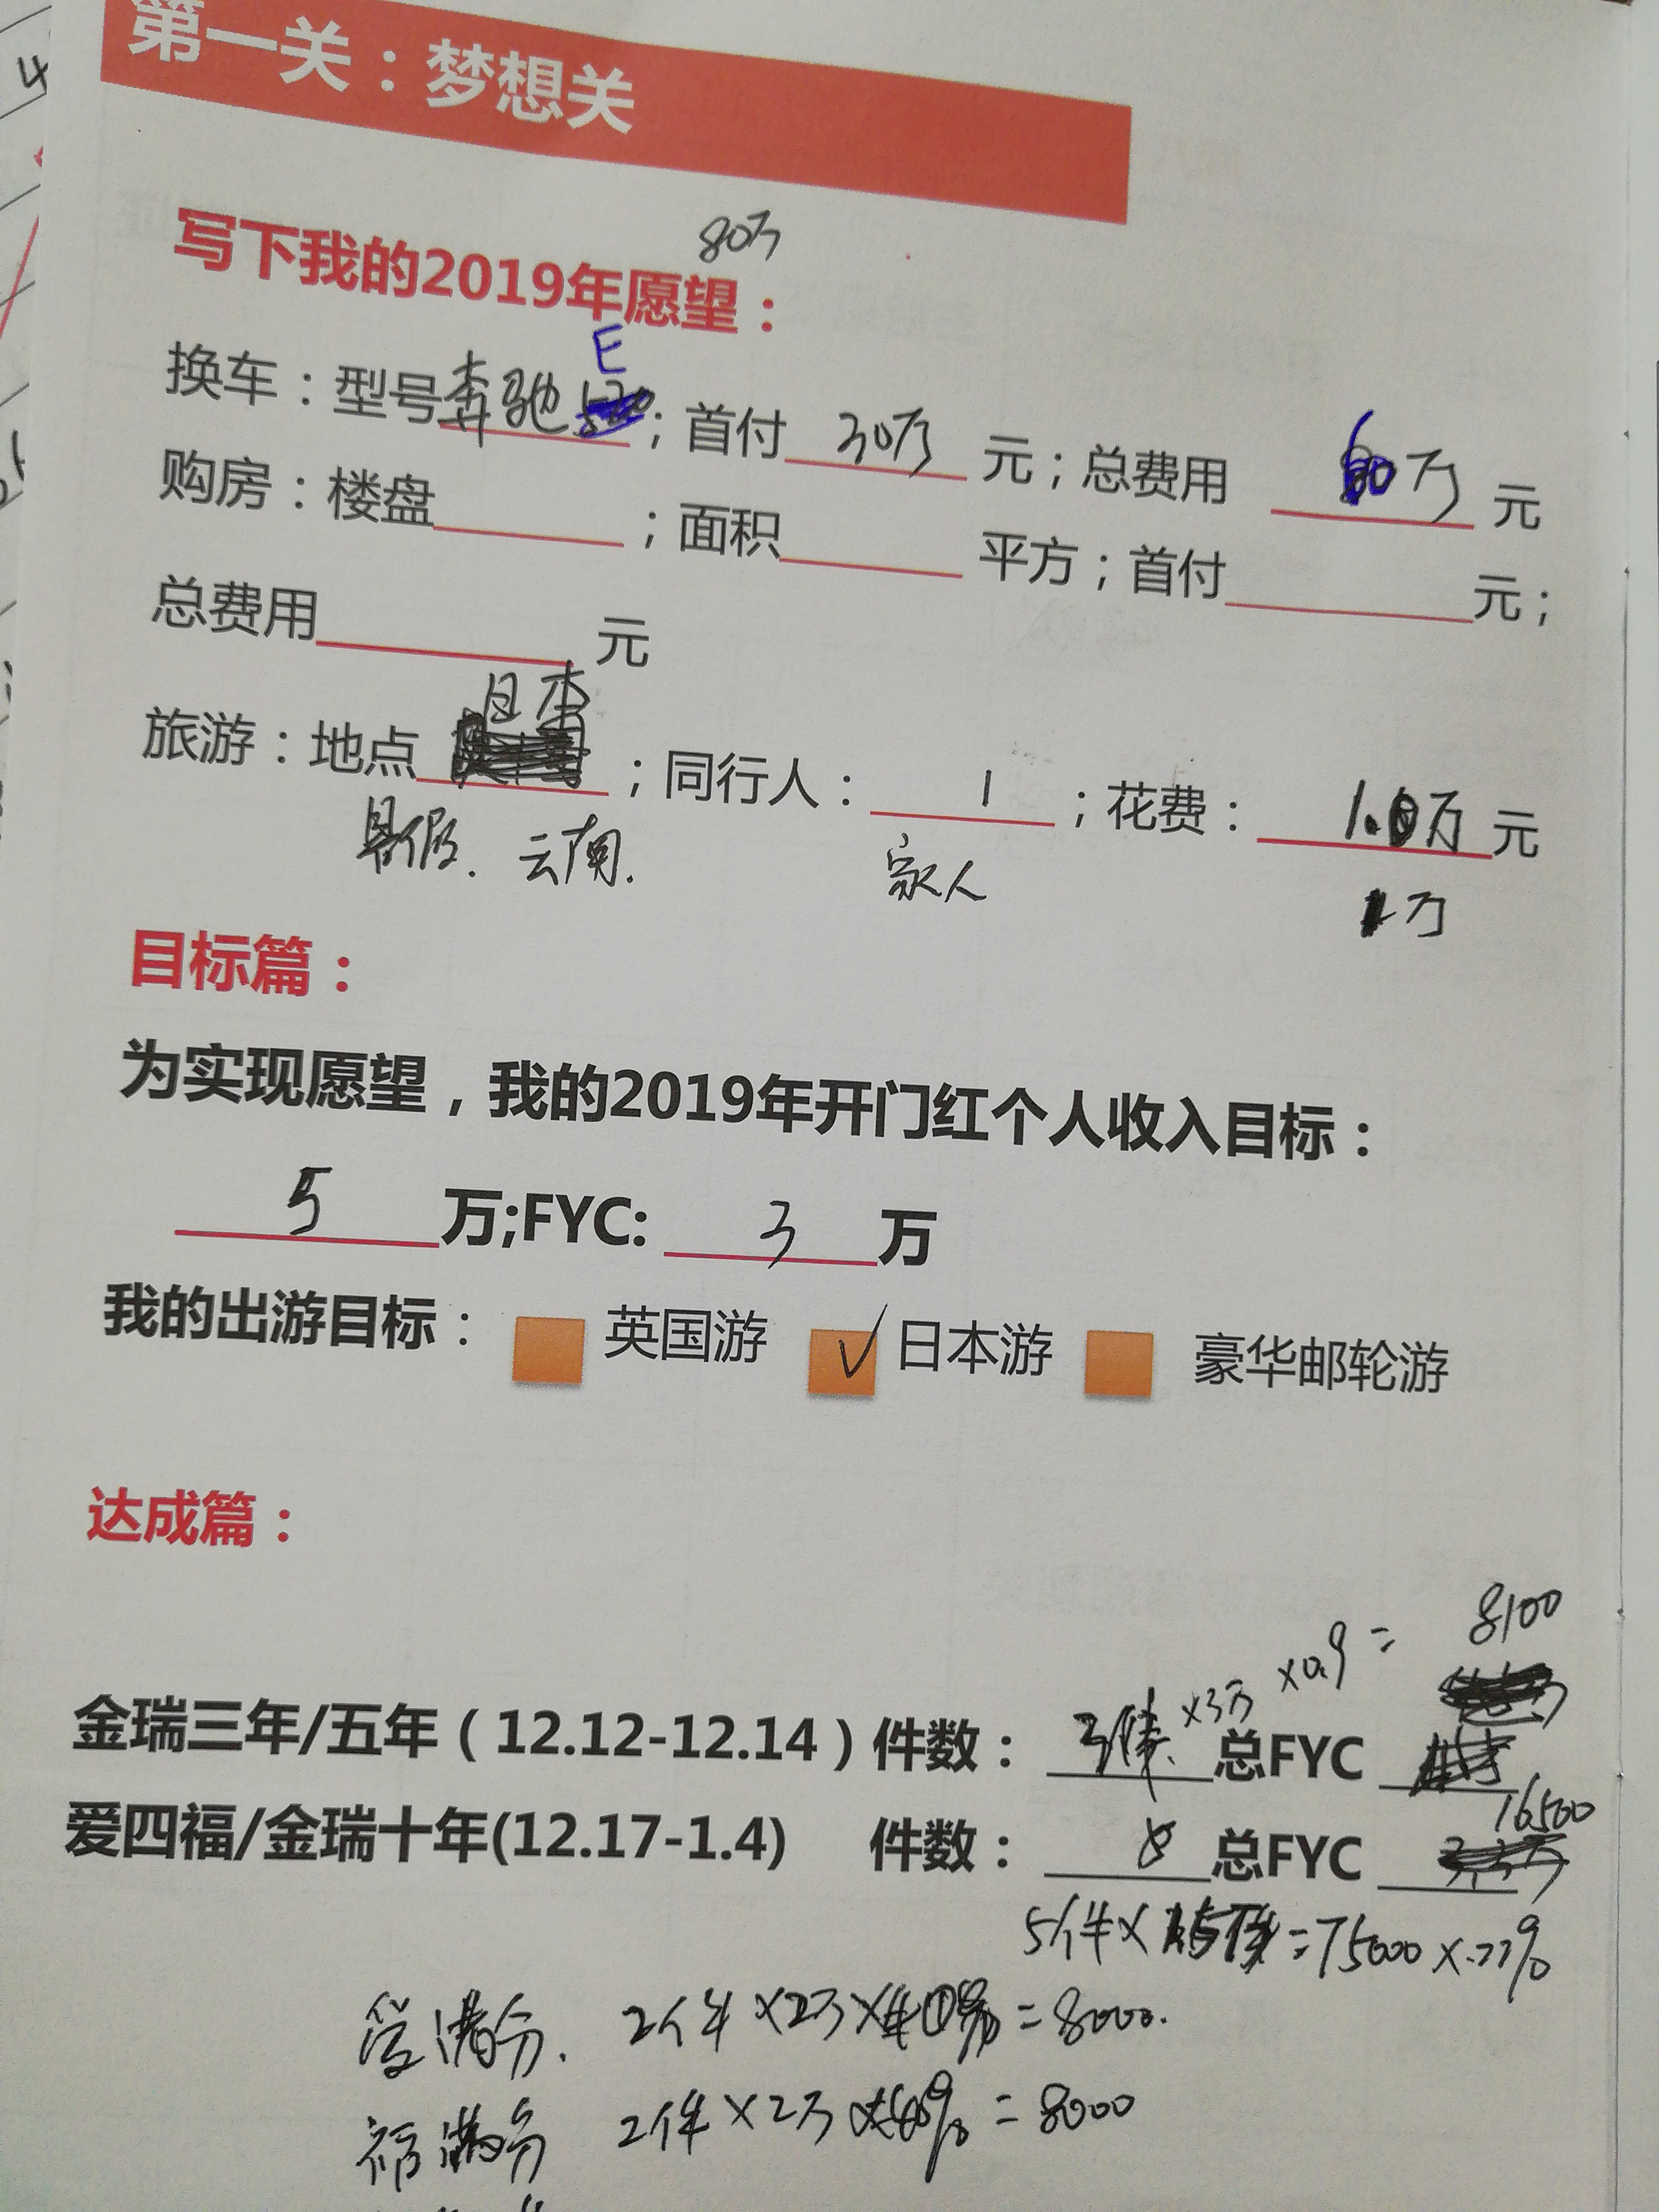 第一关：梦想关
80万
写下我的2019年愿望：
E
换车：型号奔驰；首付 30万 元；总费用 60万 元
购房：楼盘______；面积______平方；首付______元；
总费用______元
日本
旅游：地点______；同行人： 1 ；花费： 1.0万 元
暑假. 云南. 家人 1万
目标篇：
为实现愿望，我的2019年开门红个人收入目标：
5 万;FYC: 3 万
我的出游目标： 英国游 ✓ 日本游 豪华邮轮游
达成篇：
×3万 ×0.9 = 8100
金瑞三年/五年（12.12-12.14）件数： 3件 总FYC
16500
爱四福/金瑞十年(12.17-1.4) 件数： 8 总FYC
5件× =75000×.22%
爱满分. 2件×2万× =8000.
福满分 2件×2万× =8000